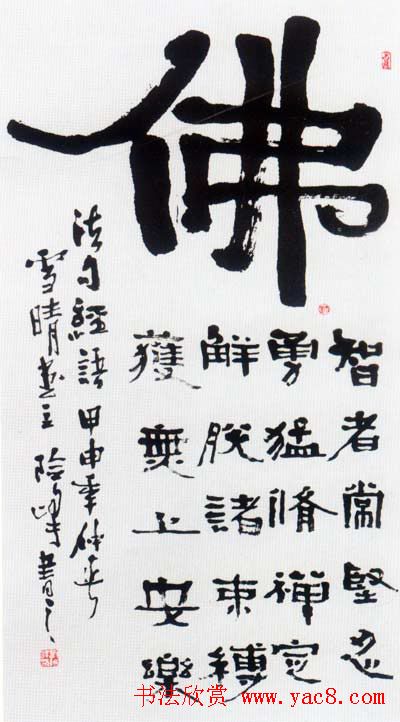 佛
智者常堅忍
勇猛脩禪定
觧脫諸束縛
獲無上安樂
法句經語甲申年仲春
雪晴主險峰書之
书法欣赏 www.yac8.com